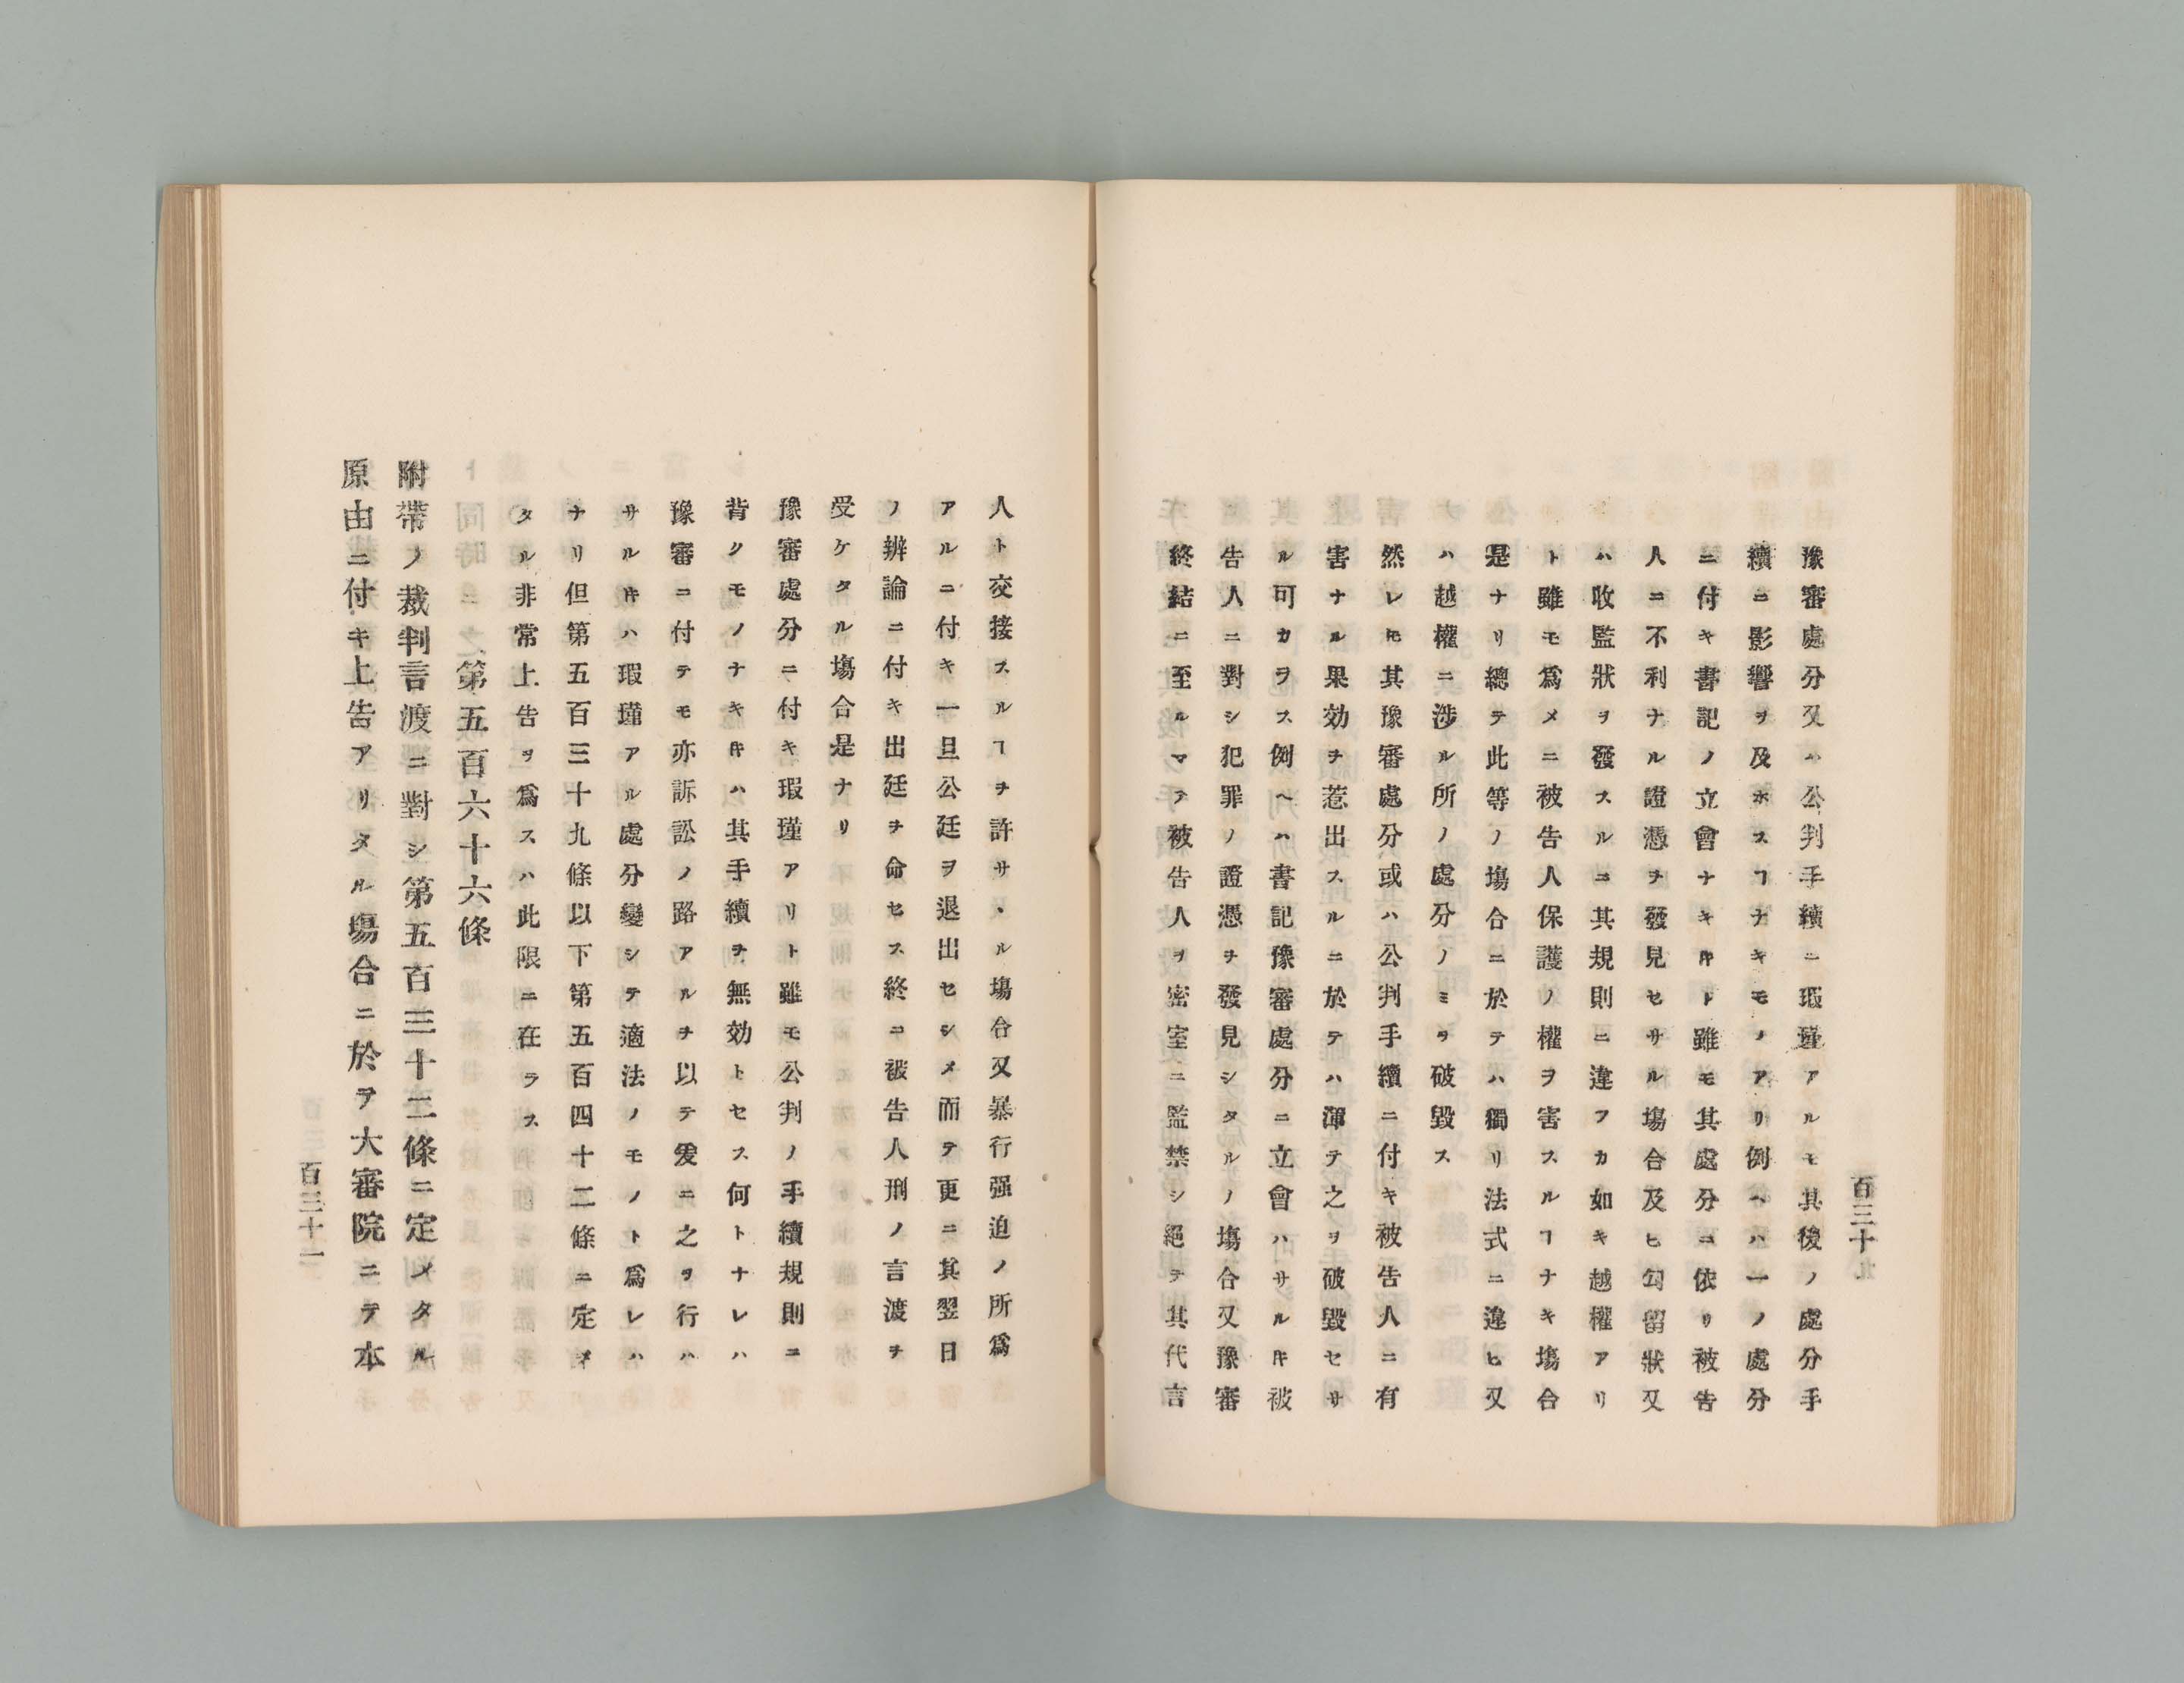 百三十九
豫審處分又ハ公判手續ニ瑕瑾アルモ其後ノ處分手
續ニ影響ヲ及ホスヿナキモノアリ例ヘハ一ノ處分
ニ付キ書記ノ立會ナキ𪜈雖モ其處分ニ依リ被告
人ニ不利ナル證憑ヲ發見セサル塲合及ヒ勾留狀又
ハ收監狀ヲ發スルニ其規則ニ違フカ如キ越權アリ
ト雖モ爲メニ被告人保護ノ權ヲ害スルヿナキ塲合
是ナリ總テ此等ノ塲合ニ於テハ獨リ法式ニ違ヒ又
ハ越權ニ涉ル所ノ處分ノミヲ破毀ス
然レ𪜈其豫審處分或ハ公判手續ニ付キ被告人ニ有
害ナル果効ヲ惹出スルニ於テハ渾テ之ヲ破毀セサ
ル可カラス例ヘハ書記豫審處分ニ立會ハサルキ被
告人ニ對シ犯罪ノ證憑ヲ發見シタルノ塲合又豫審
終結ニ至ルマテ被告人ヲ密室ニ監禁シ絕テ其代言
人ト交接スルヿヲ許サヽル塲合又暴行强迫ノ所爲
アルニ付キ一旦公廷ヲ退出セシメ而テ更ニ其翌日
ノ辨論ニ付キ出廷ヲ命セス終ニ被告人刑ノ言渡ヲ
受ケタル塲合是ナリ
豫審處分ニ付キ瑕瑾アリト雖モ公判ノ手續規則ニ
背クモノナキ𪜈ハ其手續ヲ無効トセス何トナレハ
豫審ニ付テモ亦訴訟ノ路アルヲ以テ爰ニ之ヲ行ハ
サル𪜈ハ瑕瑾アル處分變シテ適法ノモノト爲レハ
ナリ但第五百三十九條以下第五百四十二條ニ定メ
タル非常上告ヲ爲スハ此限ニ在ラス
第五百六十六條
附帶ノ裁判言渡ニ對シ第五百三十二條ニ定メタル
原由ニ付キ上告アリタル塲合ニ於テ大審院ニテ本
百三十一